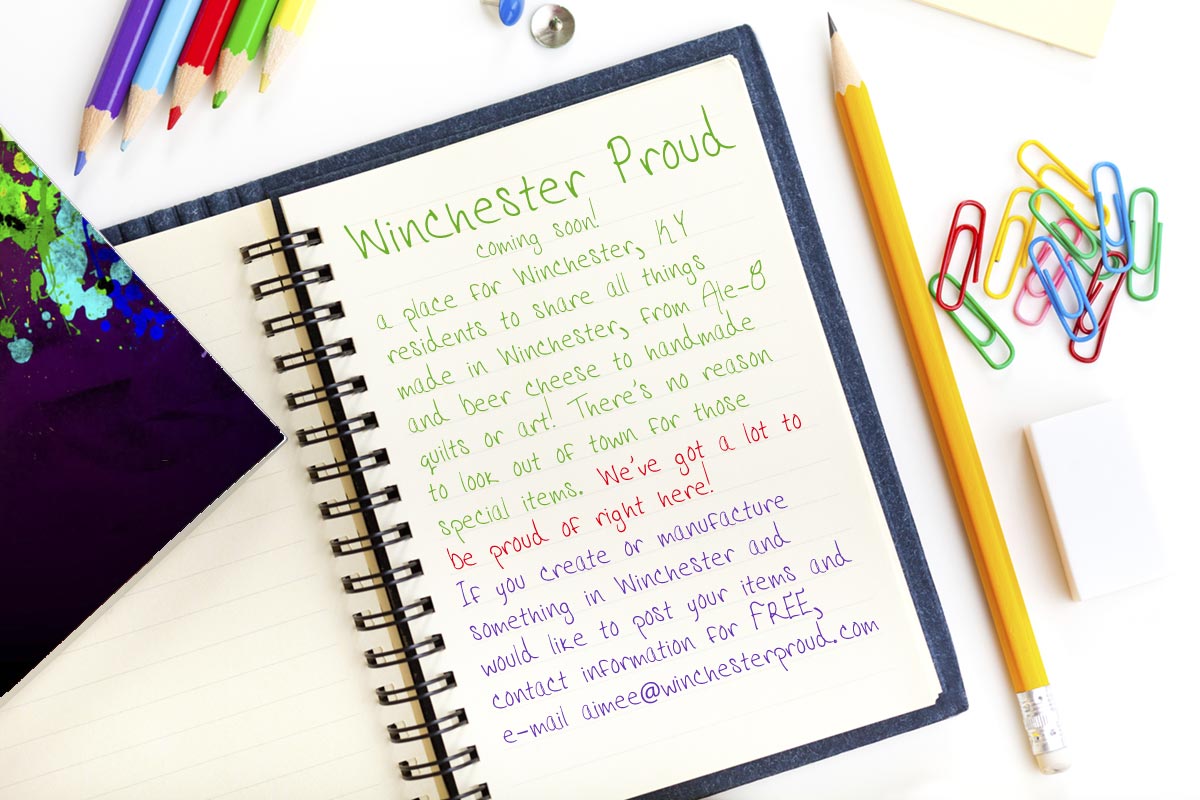 Winchester Proud
coming soon!
a place for Winchester, KY
residents to share all things
made in Winchester, from Ale-8
and beer cheese to handmade
quilts or art! There's no reason
to look out of town for those
special items. We've got a lot to
be proud of right here!
If you create or manufacture
something in Winchester and
would like to post your items and
contact information for FREE,
e-mail aimee@winchesterproud.com